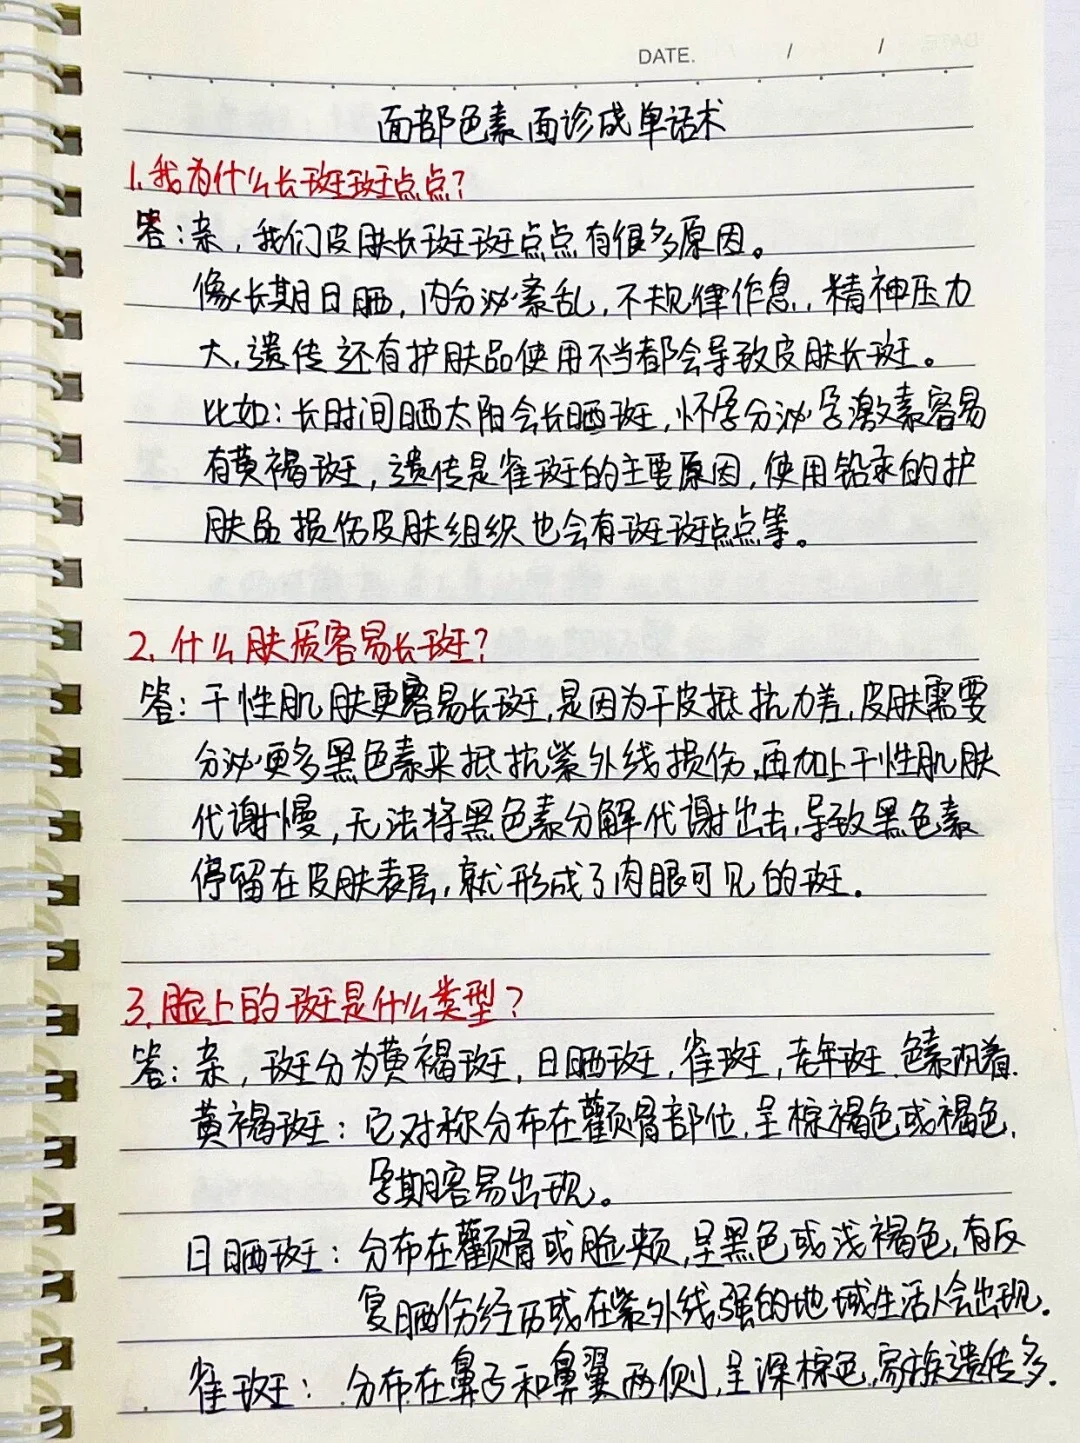 DATE. / /
面部色素面诊成单话术
1.我为什么长斑斑点点?
答:亲,我们皮肤长斑斑点点有很多原因。
像长期日晒,内分泌紊乱,不规律作息,精神压力
大,遗传还有护肤品使用不当都会导致皮肤长斑。
比如:长时间晒太阳会长晒斑,怀孕分泌孕激素容易
有黄褐斑,遗传是雀斑的主要原因,使用铅汞的护
肤品损伤皮肤组织也会有斑斑点点等。
2.什么肤质容易长斑?
答:干性肌肤更容易长斑,是因为干皮抵抗力差,皮肤需要
分泌更多黑色素来抵抗紫外线损伤,再加上干性肌肤
代谢慢,无法将黑色素分解代谢出去,导致黑色素
停留在皮肤表层,就形成了肉眼可见的斑.
3.脸上的斑是什么类型?
答:亲,斑分为黄褐斑,日晒斑,雀斑,老年斑.色素沉着.
黄褐斑:它对称分布在颧骨部位,呈棕褐色或褐色,
孕期容易出现。
日晒斑:分布在颧骨或脸颊,呈黑色或浅褐色,有反
复晒伤经历或在紫外线强的地域生活人会出现.
雀斑:分布在鼻子和鼻翼两侧,呈深棕色,家族遗传多.